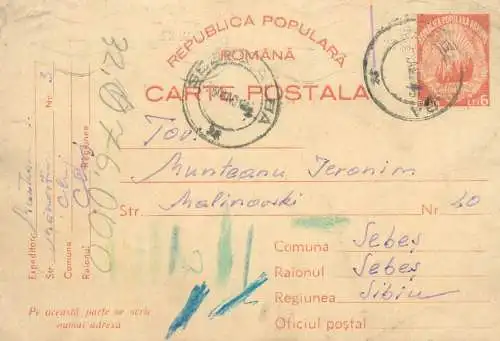 REPUBLICA POPULARĂ
ROMÂNĂ
CARTE POSTALA
REPUBLICA POPULARA
LEI 6
Tov.
Munteanu Ieronim
Str. Malinovski Nr 30
Comuna Sebeș
Raionul Sebeș
Regiunea Sibiu
Oficiul poștal
Expeditor
Str. Nr. 3
Comuna Cluj
Raionul
Regiunea Cluj
Pe această parte se scrie
numai adresa